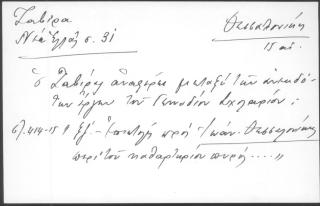 Ζαβίρα
Νέα Ἑλλάς σ. 31
Θεσσαλονίκη
15 αἰ.
ὁ Ζαβίρας ἀναφέρει μεταξὺ τῶν ἀνεκδό-
των ἔργων τοῦ Γενναδίου Σχολαρίου:
Ἐπιστολὴ πρὸς Ἰωάν. Θεσσαλονίκης
περὶ τοῦ καθαρτηρίου πυρός....»